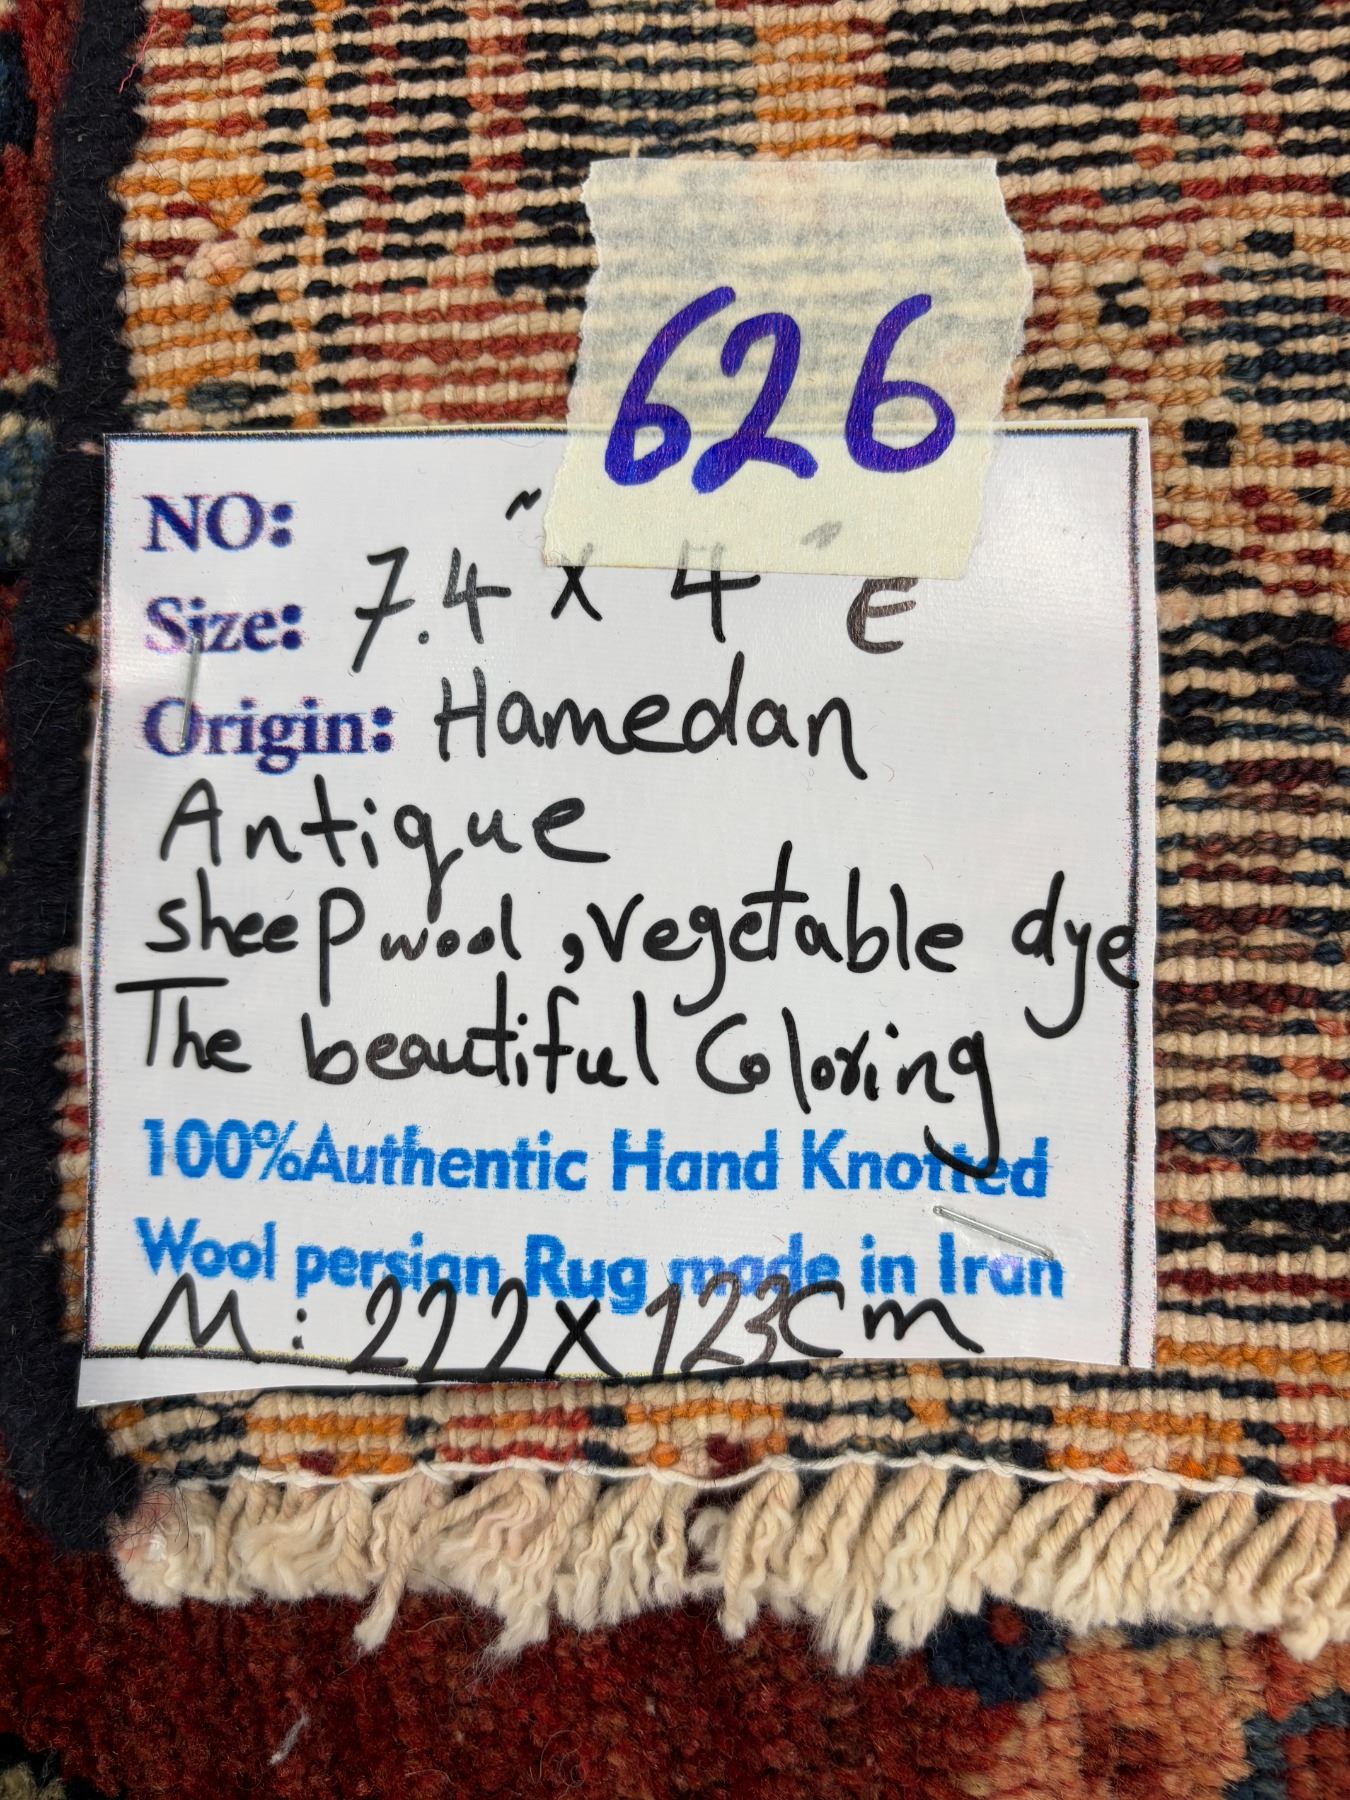 626
NO:
Size: 7.4 x 4 E
Origin: Hamedan
Antique
sheep wool, vegetable dye
The beautiful Coloring
100%Authentic Hand Knotted
Wool persian Rug made in Iran
M: 222x123cm